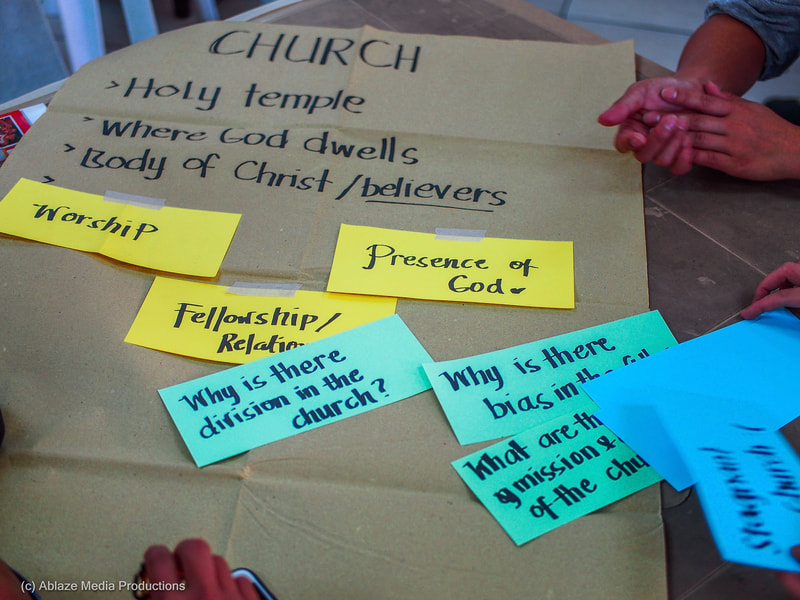 CHURCH
> Holy temple
> Where God dwells
> Body of Christ / believers
>
Worship
Presence of
God.
Fellowship/
Why is there
division in the
church?
Why is there
bias in the
What are
mission &
of the
(c) Ablaze Media Productions